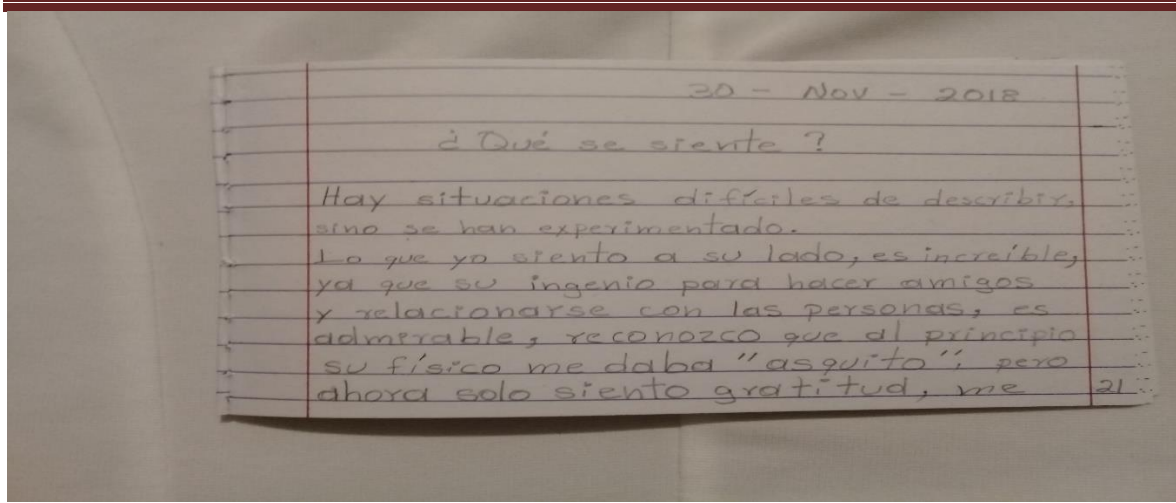 30 - Nov - 2018
¿Qué se siente?
Hay situaciones difíciles de describir,
sino se han experimentado.
Lo que yo siento a su lado, es increíble,
ya que su ingenio para hacer amigos
y relacionarse con las personas, es
admirable, reconozco que al principio
su físico me daba "asquito", pero
ahora solo siento gratitud, me
21